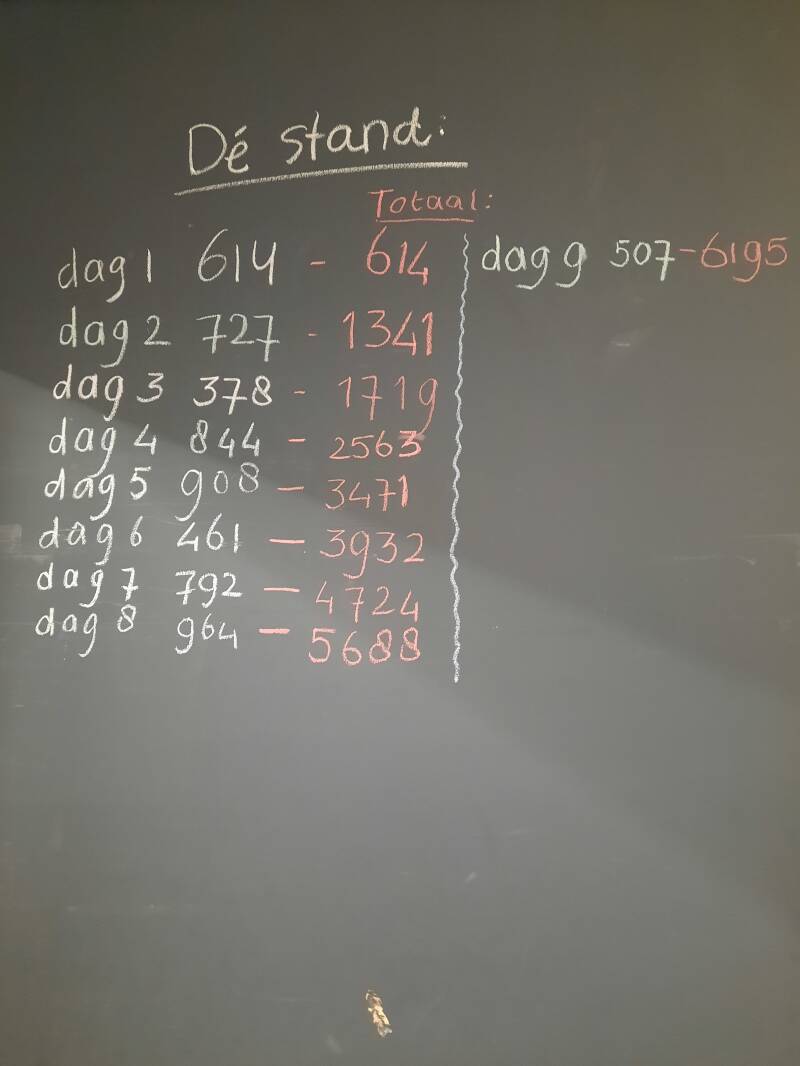 Dé stand:
Totaal:
dag 1 614 - 614
dag 2 727 - 1341
dag 3 378 - 1719
dag 4 844 - 2563
dag 5 908 - 3471
dag 6 461 - 3932
dag 7 792 - 4724
dag 8 964 - 5688
dag 9 507 - 6195